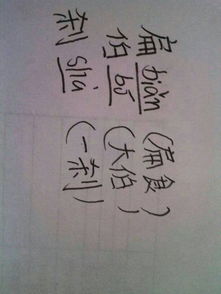 扁 biǎn (扁食)
伯 bó (大伯)
刹 shà (一刹)